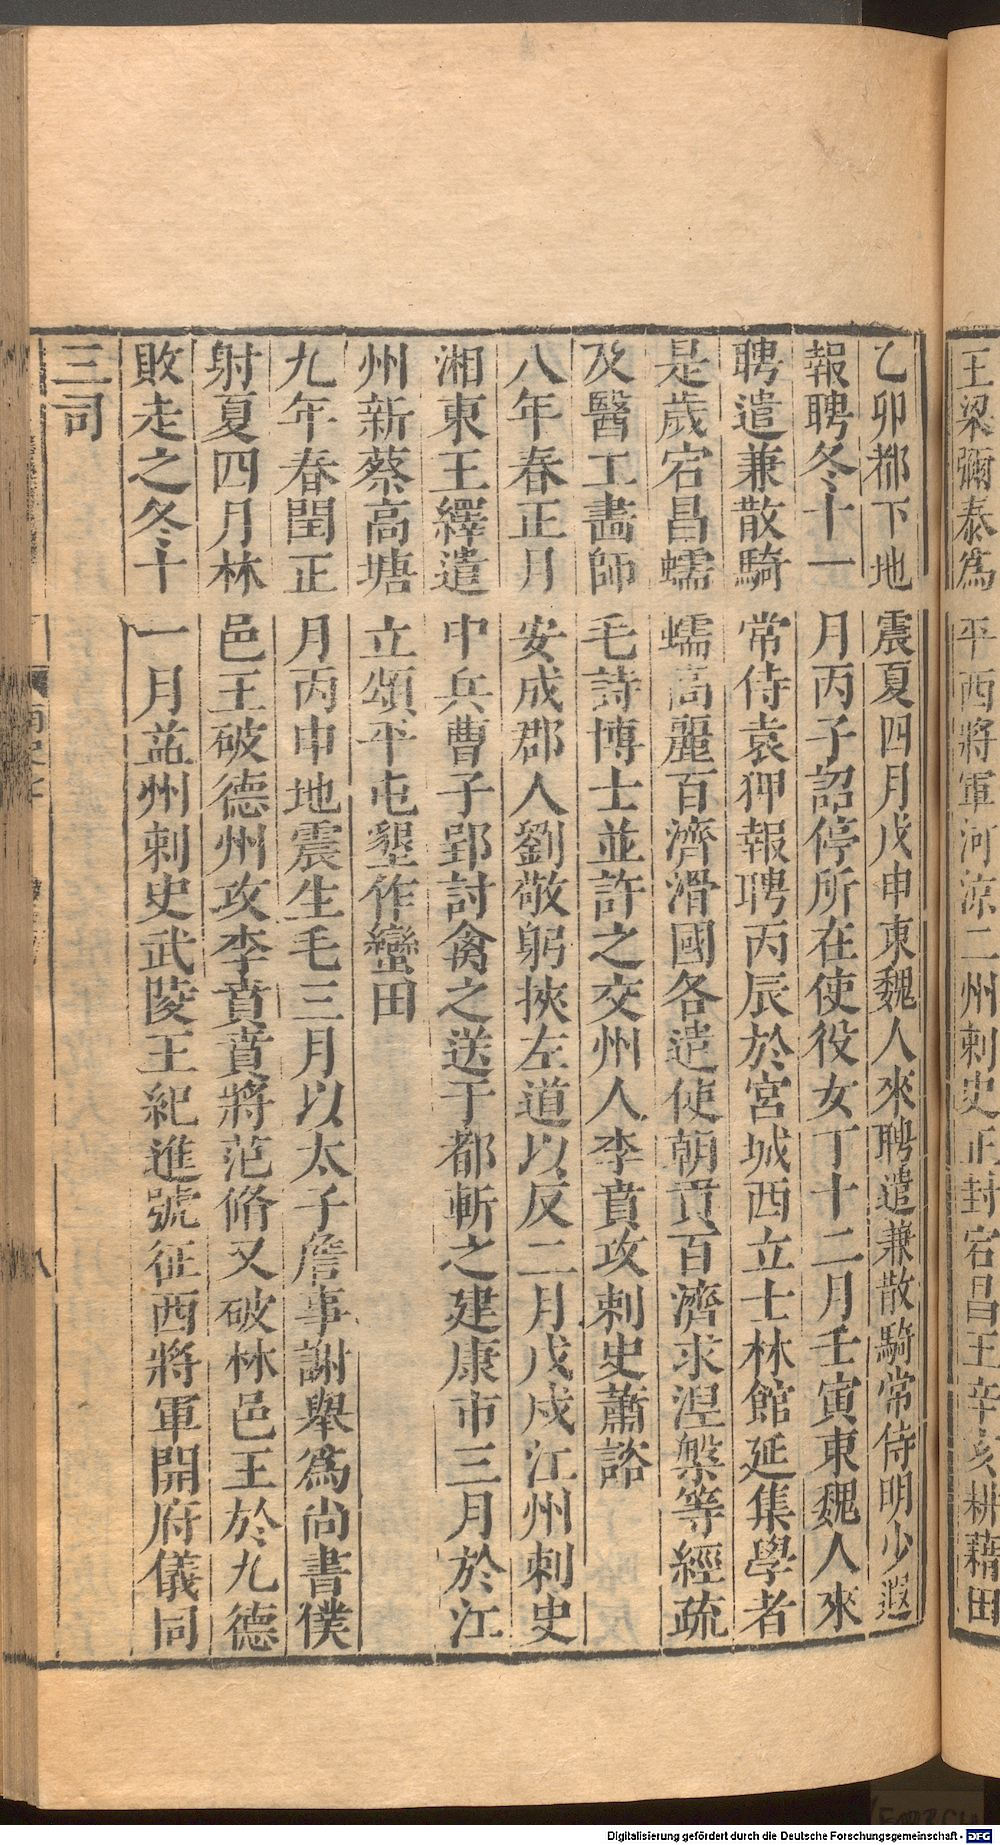 王梁彌泰為平西將軍河凉二州刺史正封宕昌王辛亥耕藉田
乙卯都下地震夏四月戊申東魏人來聘遣兼散騎常侍明少遐
報聘冬十一月丙子詔停所在使役女丁十二月壬寅東魏人來
聘遣兼散騎常侍袁狎報聘丙辰於宮城西立士林館延集學者
是歲宕昌蠕蠕高麗百濟滑國各遣使朝貢百濟求涅槃等經疏
及醫工畵師毛詩博士並許之交州人李賁攻刺史蕭諮
八年春正月安成郡人劉敬躬挾左道以反二月戊戌江州刺史
湘東王繹遣中兵曹子郢討禽之送于都斬之建康市三月於江
州新蔡高塘立頌平屯墾作蠻田
九年春閏正月丙申地震生毛三月以太子詹事謝舉為尚書僕
射夏四月林邑王破德州攻李賁賁將范脩又破林邑王於九德
敗走之冬十一月益州刺史武陵王紀進號征西將軍開府儀同
三司
八
Digitalisierung gefördert durch die Deutsche Forschungsgemeinschaft - DFG